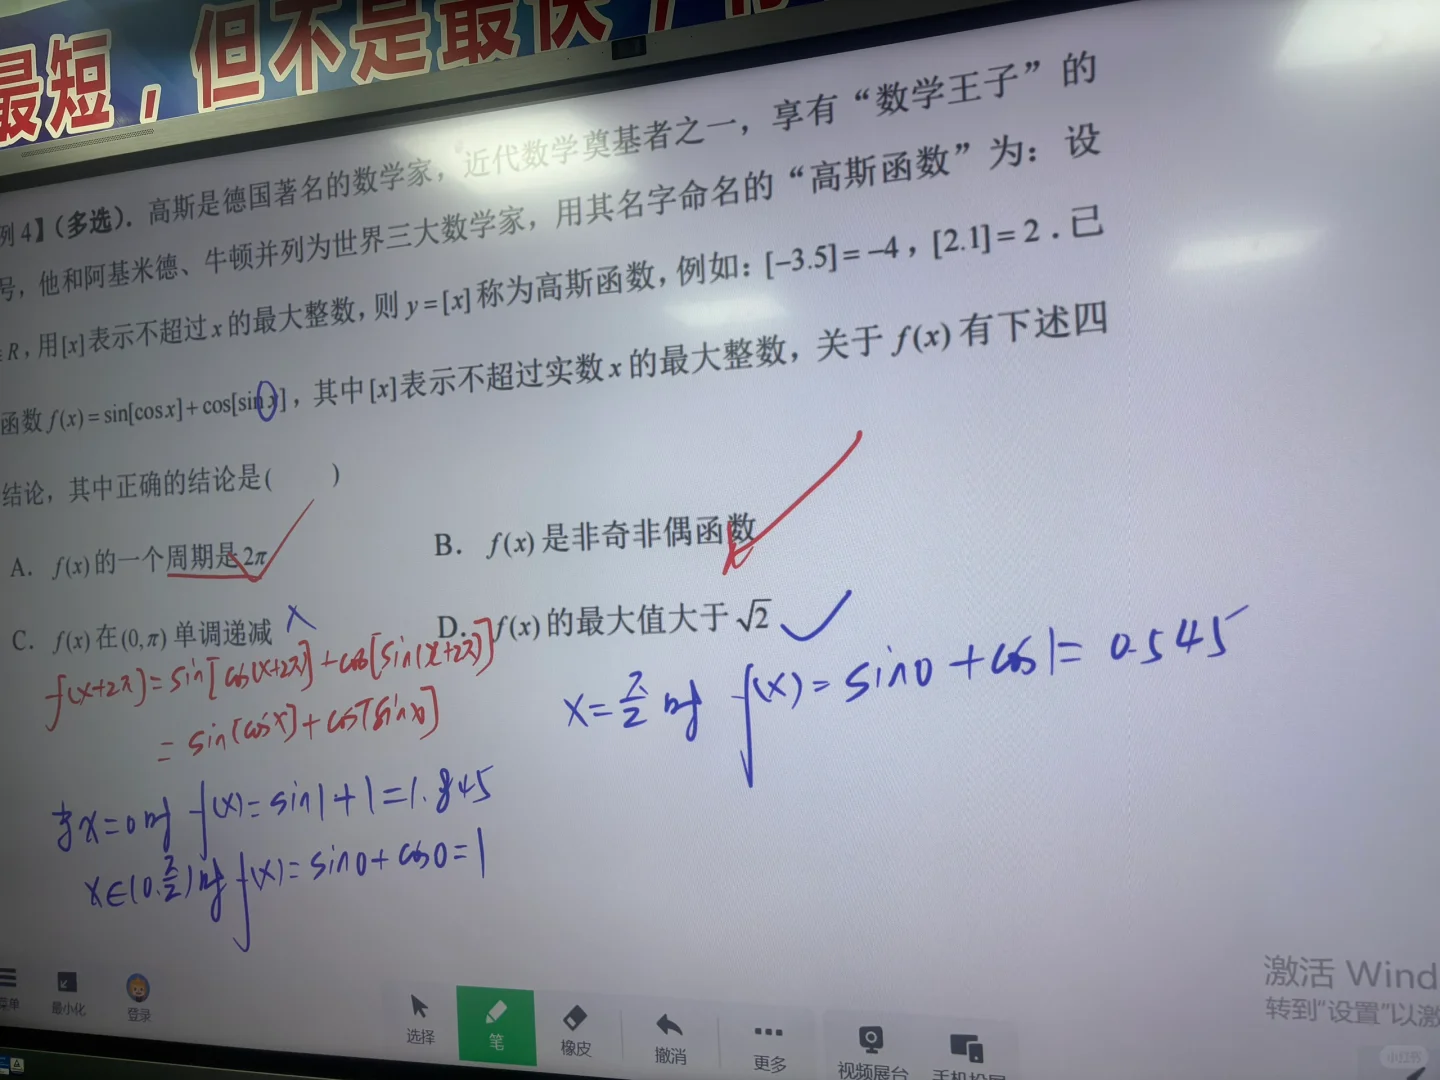 最短，但不是最快，
例4】(多选)．高斯是德国著名的数学家，近代数学奠基者之一，享有“数学王子”的
号，他和阿基米德、牛顿并列为世界三大数学家，用其名字命名的“高斯函数”为：设
R，用[x]表示不超过x的最大整数，则y=[x]称为高斯函数，例如：[-3.5]=-4，[2.1]=2．已
函数f(x)=sin[cosx]+cos[sinx]，其中[x]表示不超过实数x的最大整数，关于f(x)有下述四
结论，其中正确的结论是( )
A．f(x)的一个周期是2π
B．f(x)是非奇非偶函数
C．f(x)在(0,π)单调递减 ×
D．f(x)的最大值大于√2
f(x+2π)=sin[cos(x+2π)]+cos[sin(x+2π)]
=sin[cosx]+cos[sinx]
x=π/2时 f(x)=sin0+cos1=0.545
x=0时 f(x)=sin1+1=1.845
x∈(0.π/2)时 f(x)=sin0+cos0=1
激活 Wind
转到“设置”以激
菜单
最小化
登录
选择
笔
橡皮
撤消
更多
视频展台
手机投屏
小红书